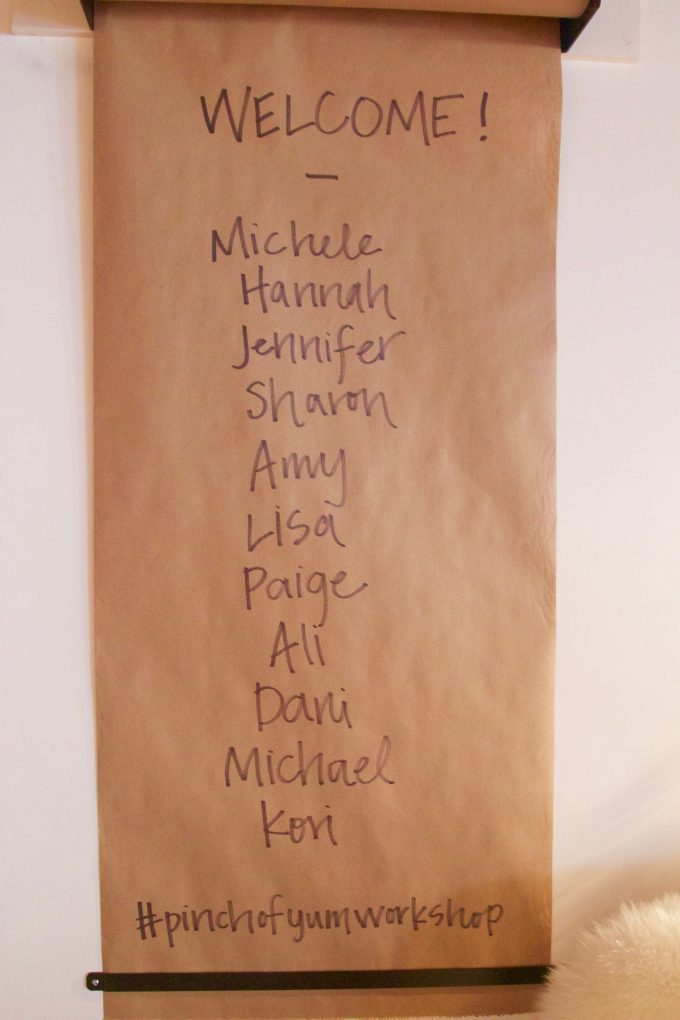 WELCOME!
—
Michele
Hannah
Jennifer
Sharon
Amy
Lisa
Paige
Ali
Dani
Michael
Kori
#pinchofyumworkshop